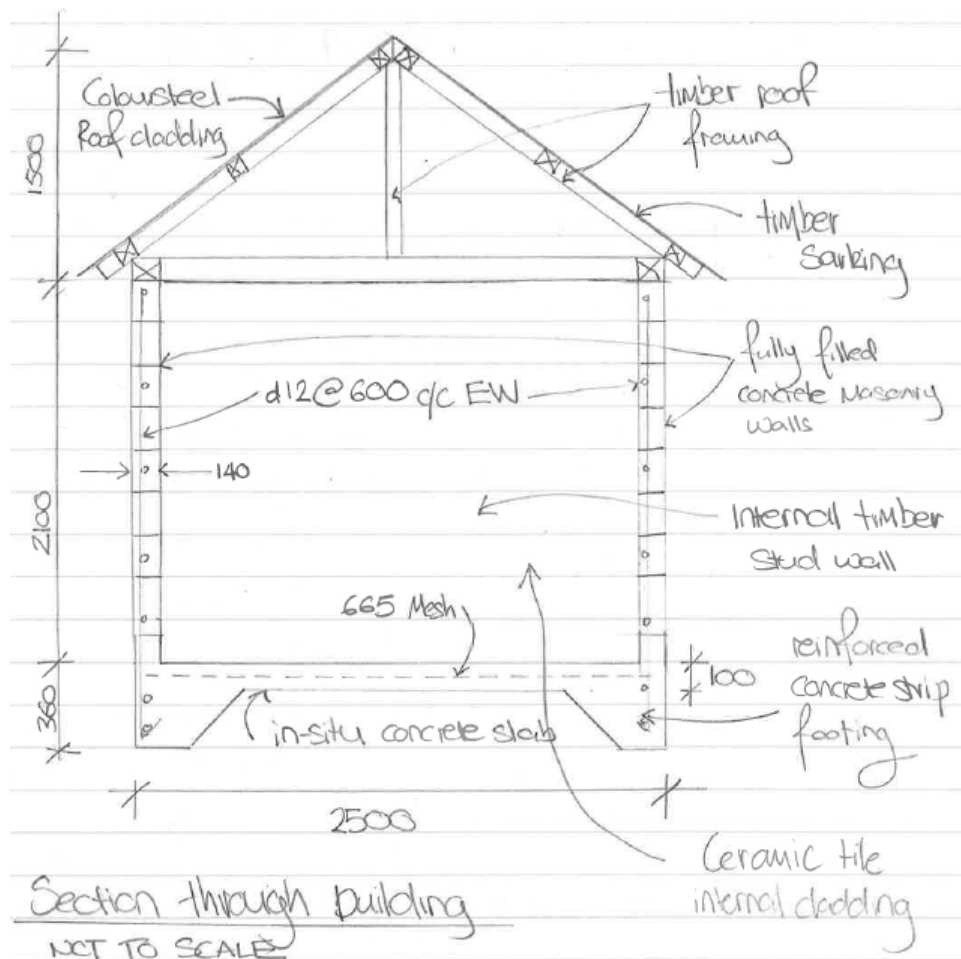 Coloursteel
Roof cladding
timber roof
framing
1500
timber
Sarking
fully filled
concrete masonry
walls
d12@600 c/c EW
140
2100
Internal timber
Stud wall
665 Mesh
reinforced
concrete strip
footing
100
360
in-situ concrete slab
2500
Ceramic tile
internal cladding
Section through building
NOT TO SCALE